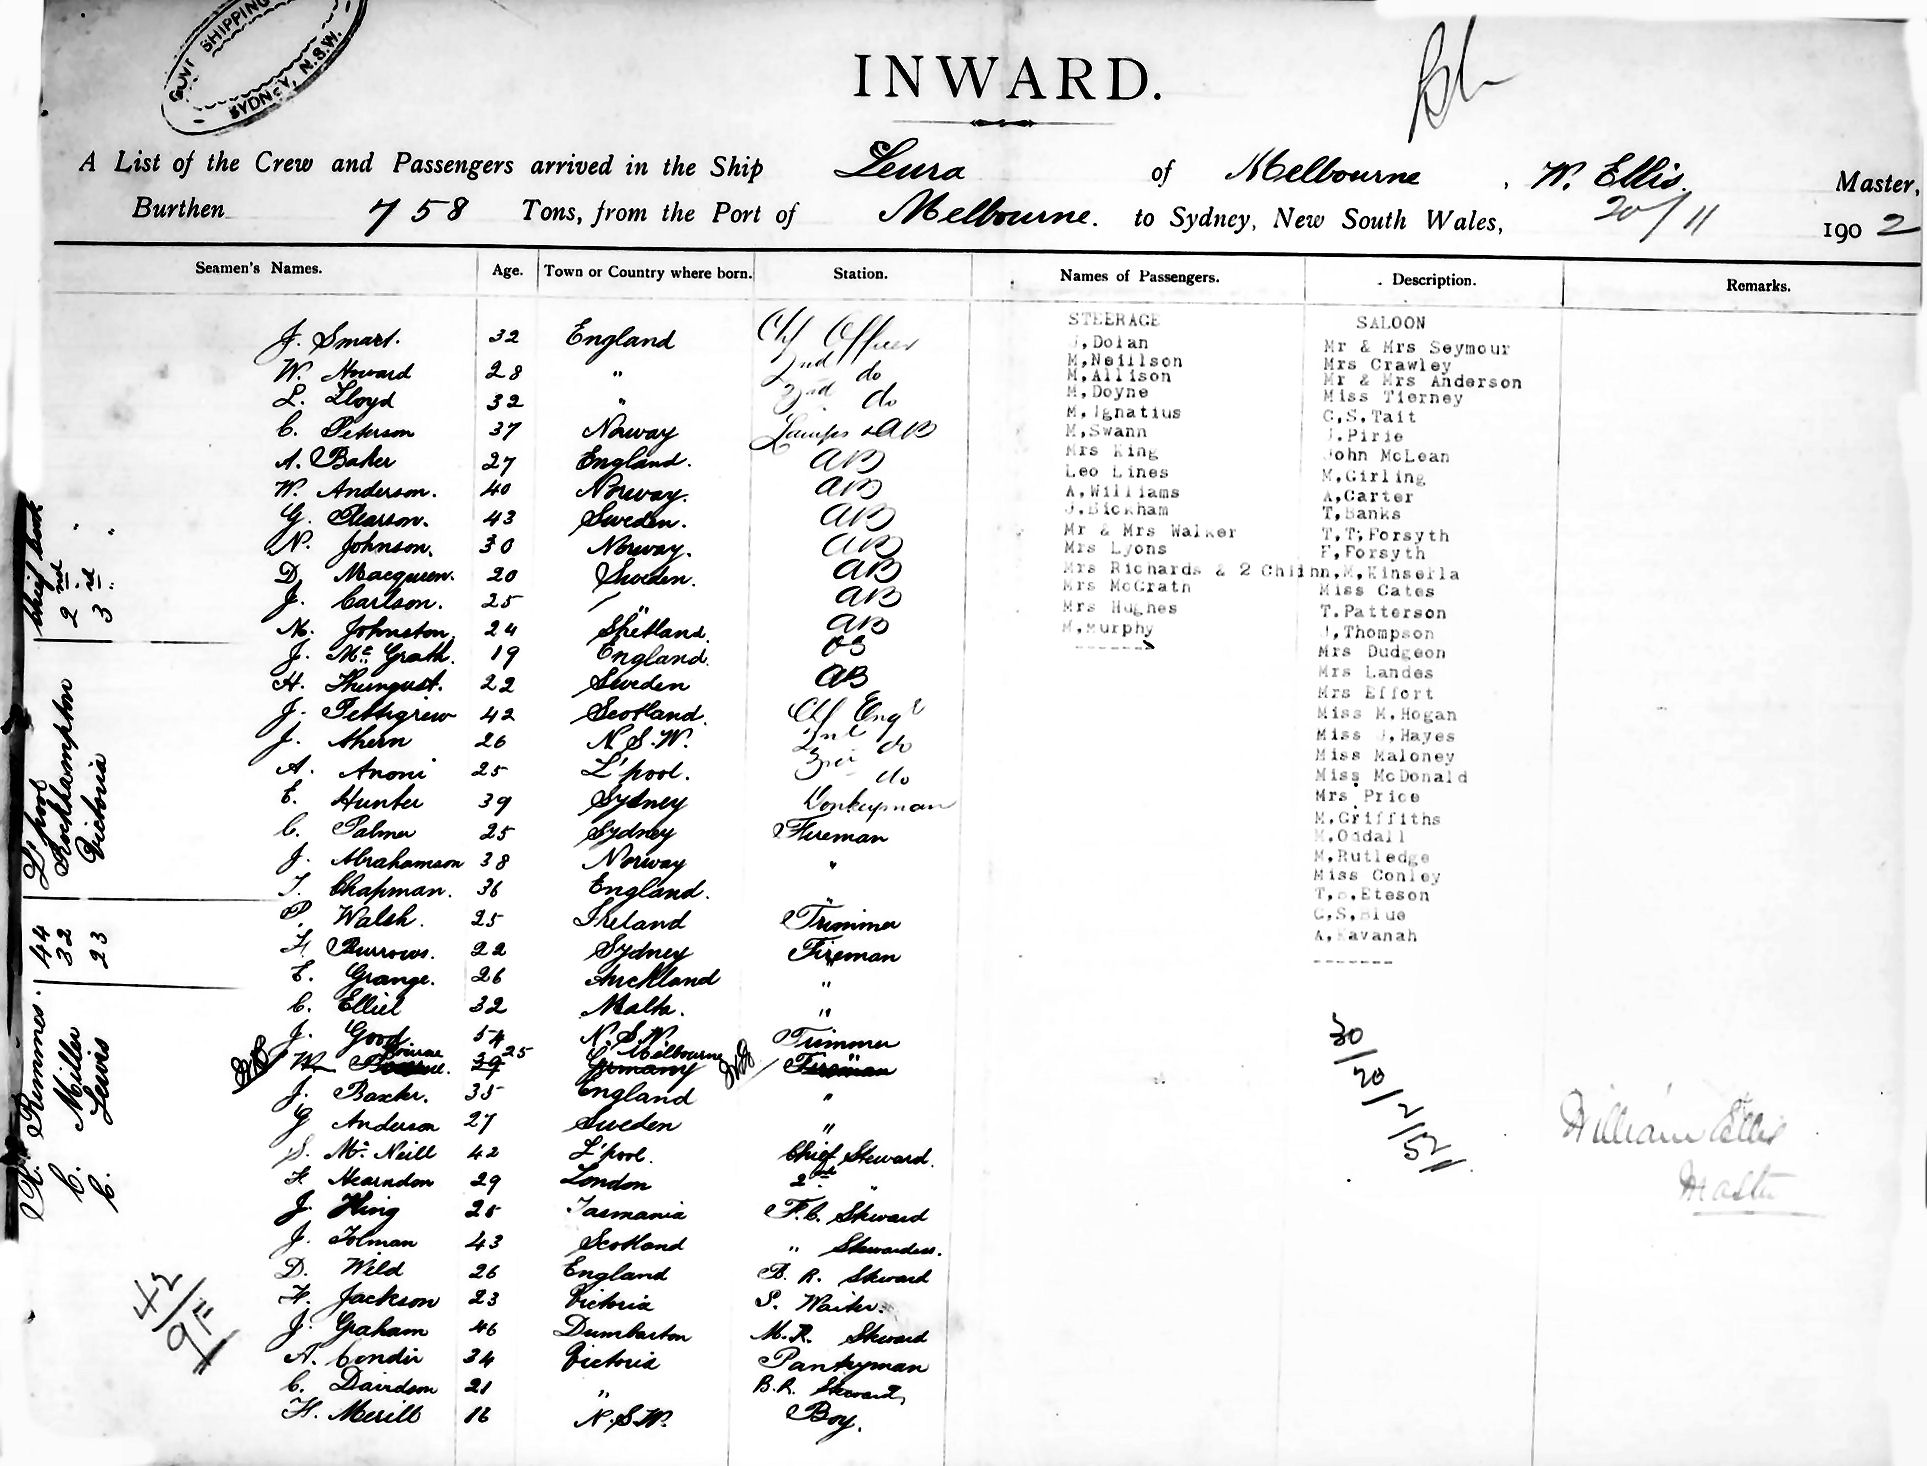 GOVT SHIPPING
SYDNEY, N.S.W.
INWARD.
A List of the Crew and Passengers arrived in the Ship Leura of Melbourne, W. Ellis. Master,
Burthen 758 Tons, from the Port of Melbourne. to Sydney, New South Wales, 20/11 1902
Seamen's Names. Age. Town or Country where born. Station. Names of Passengers. Description. Remarks.
J. Smart. 32 England Chf Officer
W. Howard 28 " 2nd do
L. Lloyd 32 " 3rd do
C. Peterson 37 Norway Lamps & AB
A. Baker 27 England. AB
W. Anderson. 40 Norway. AB
G. Pearson. 43 Sweden. AB
N. Johnson. 30 Norway. AB
D. Macqueen. 20 Sweden. AB
J. Carlson. 25 " AB
M. Johnston 24 Shetland. AB
J. Mc Grath. 19 England. OS
H. 22 Sweden AB
J. Pettigrew 42 Scotland. Chf Engr
J. Ahern 26 N.S.W. 2nd do
A. Anoni 25 L'pool. 3rd do
E. Hunter 39 Sydney Donkeyman
C. Palmer 25 Sydney Fireman
J. Abrahamson 38 Norway "
T. Chapman. 36 England. "
P. Walsh. 25 Ireland Trimmer
H. Burrows. 22 Sydney Fireman
E. Grange. 26 Auckland "
C. Elliel 32 Malta. "
J. Good 54 N.S.W. Trimmer
W. 39 25 Germany Melbourne Fireman "
J. Baxter. 35 England "
G Anderson 27 Sweden "
S. Mc Neill 42 L'pool. Chief Steward.
F. Hearndon 29 London 2nd "
J. King 25 Tasmania F.C. Steward
J. Tolman 43 Scotland " Stewardess.
D. Wild 26 England B. R. Steward
H. Jackson 23 Victoria S. Waiter.
J. Graham 46 Dumbarton M.R. Steward
A. Condir 34 Victoria Pantryman
C. Davidson 21 " B.R. Steward
H. Merill 16 N.S.W. Boy.
STEERAGE
J,Dolan
M,Neillson
M,Allison
M,Doyne
M,Ignatius
M,Swann
Mrs King
Leo Lines
A,Williams
J,Bickham
Mr & Mrs Walker
Mrs Lyons
Mrs Richards & 2 Chiinn,M,Kinsella
Mrs McGrath
Mrs Hughes
M,Murphy
------>
SALOON
Mr & Mrs Seymour
Mrs Crawley
Mr & Mrs Anderson
Miss Tierney
C,S,Tait
J.Pirie
John McLean
M,Girling
A,Carter
T,Banks
T,T,Forsyth
F,Forsyth
Miss Cates
T.Patterson
J,Thompson
Mrs Dudgeon
Mrs Landes
Mrs Effort
Miss M.Hogan
Miss J,Hayes
Miss Maloney
Miss McDonald
Mrs Price
M,Griffiths
M,Oddall
M,Rutledge
Miss Conley
T,S,Eteson
C,S,Blue
A,Kavanah
-------
30/20/2/52
William Ellis
Master
R. Rummes. 44 L'pool Chief Cook
C. Miller 32 Rockhampton 2nd "
C. Lewis 23 Victoria 3rd "
42/9F